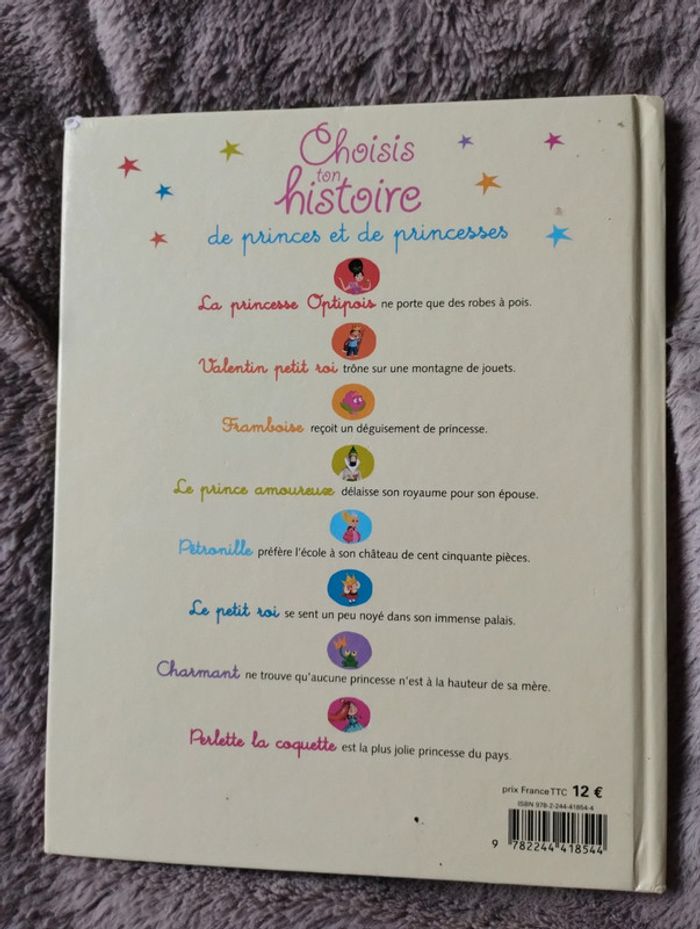 Choisis
ton
histoire
de princes et de princesses
La princesse Optipois ne porte que des robes à pois.
Valentin petit roi trône sur une montagne de jouets.
Framboise reçoit un déguisement de princesse.
Le prince amoureux délaisse son royaume pour son épouse.
Pétronille préfère l'école à son château de cent cinquante pièces.
Le petit roi se sent un peu noyé dans son immense palais.
Charmant ne trouve qu'aucune princesse n'est à la hauteur de sa mère.
Perlette la coquette est la plus jolie princesse du pays.
prix France TTC 12 €
ISBN 978-2-244-41854-4
9 782244 418544